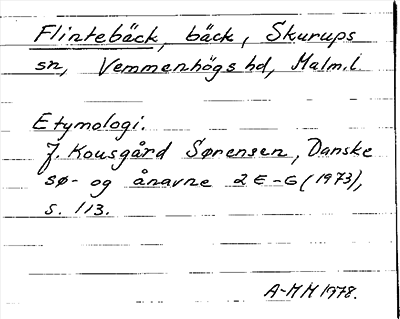 Flintebäck, bäck, Skurups
sn, Vemmenhögs hd, Malm.l
Etymologi.
J. Kousgård Sørensen, Danske
sø- og ånavne 2 E-G (1973),
s. 113.
A-MM 1978.